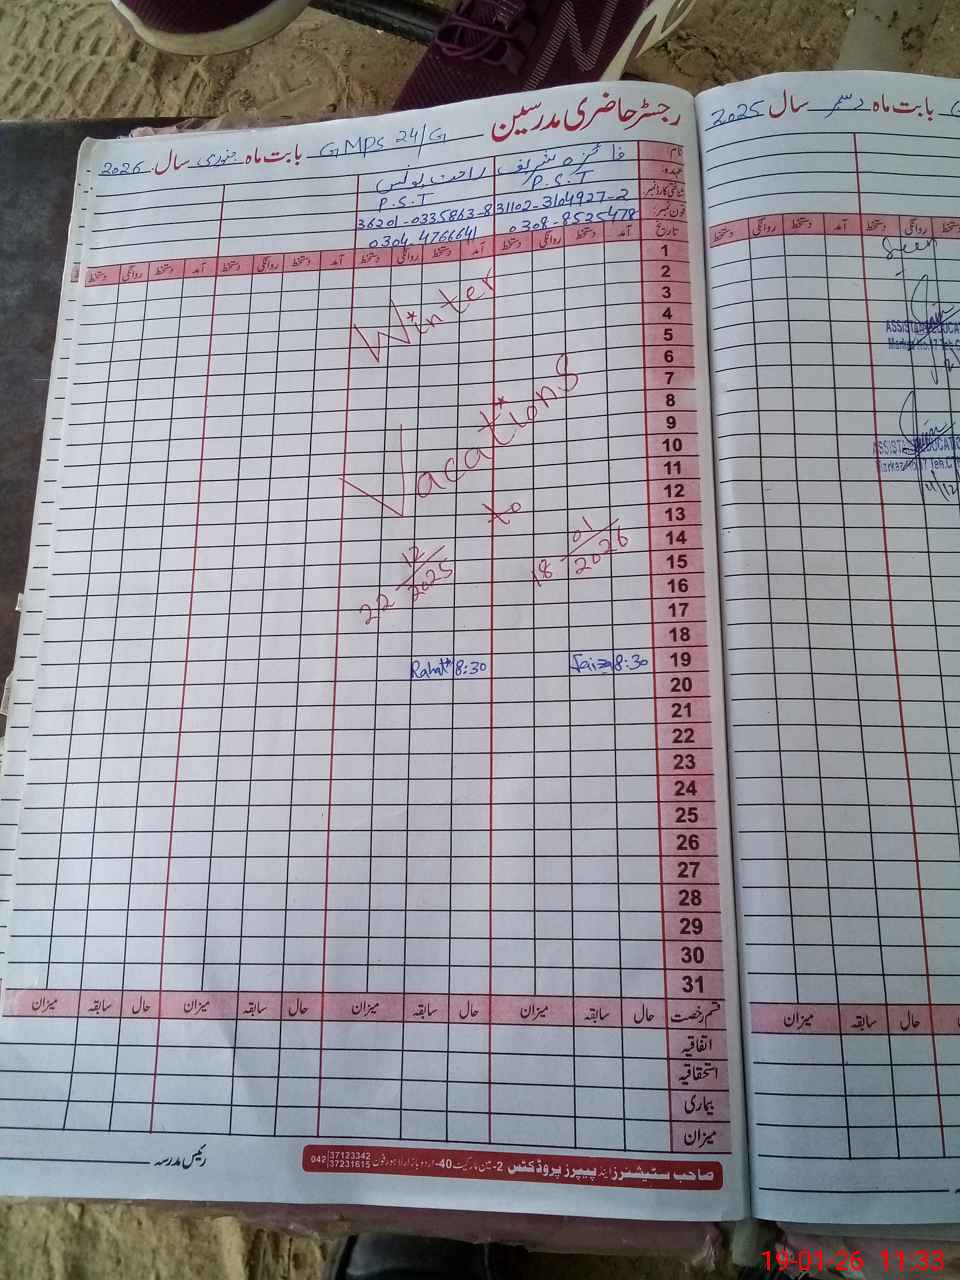 رجسٹر حاضری مدرسین
GMPS 24/G بابت ماہ جنوری سال 2026
نام: فائزہ شریف راحت یونس
عہدہ: P.S.T P.S.T
شناختی کارڈ نمبر: 31102-3104927-2 36201-0335863-8
فون نمبر: 0308-8525478 0304-4766641
تاریخ آمد دستخط روانگی دستخط آمد دستخط روانگی دستخط آمد دستخط روانگی دستخط آمد دستخط روانگی دستخط
1
2
3
4
5
6
7
8
9
10
11
12
13
14
15
16
17
18
19 8:30 Faiza 8:30 Rahat
20
21
22
23
24
25
26
27
28
29
30
31
Winter
Vacations
22 12/2025 to 18 01/2026
قسم رخصت حال سابقہ میزان حال سابقہ میزان حال سابقہ میزان حال سابقہ میزان
اتفاقیہ
استحقاقیہ
بیماری
میزان
رئیس مدرسہ
صاحب سٹیشنرز اینڈ پیپرز پروڈکٹس 2-مین مارکیٹ 40-اردو بازار لاہور فون 042 37123342 37231615
بابت ماہ دسمبر سال 2025
دستخط روانگی دستخط آمد دستخط روانگی دستخط
Seen
ASSISTA EDUCATI
Markaz No.17 Teh.C
ASSISTA EDUCATI
Markaz No.17 Teh.C
11/12
حال سابقہ میزان
19-01-26 11:33